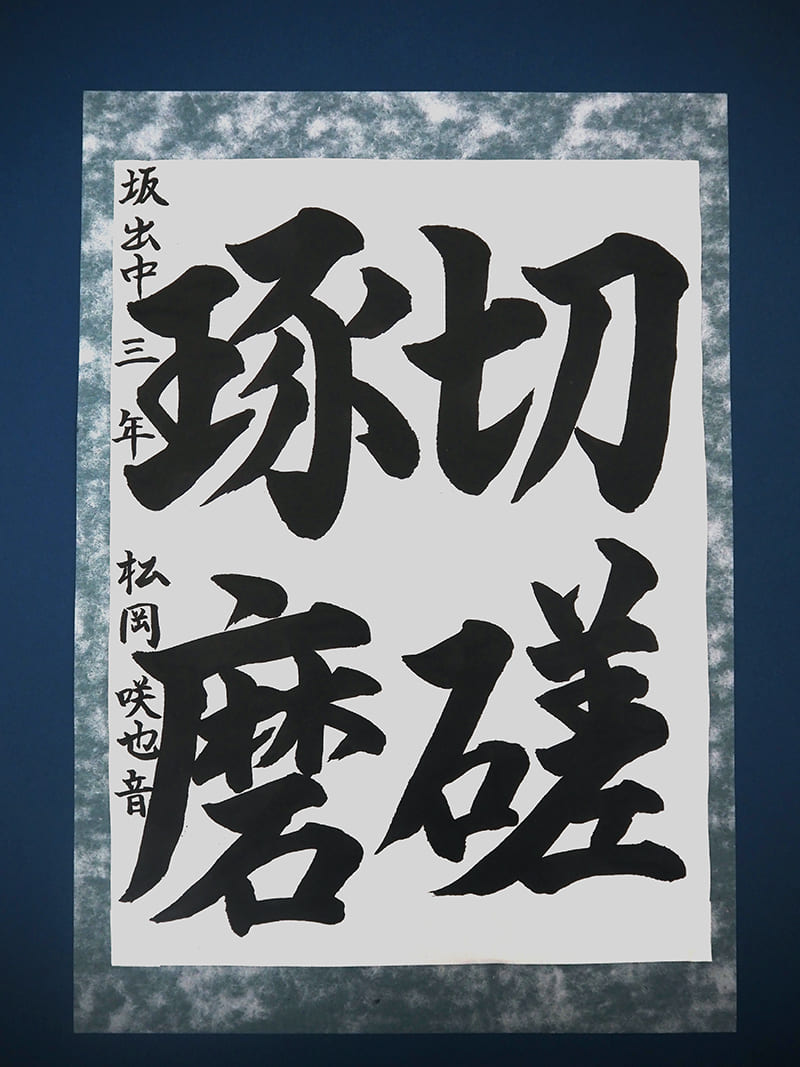 切磋
琢磨
坂出中三年 松岡咲也音